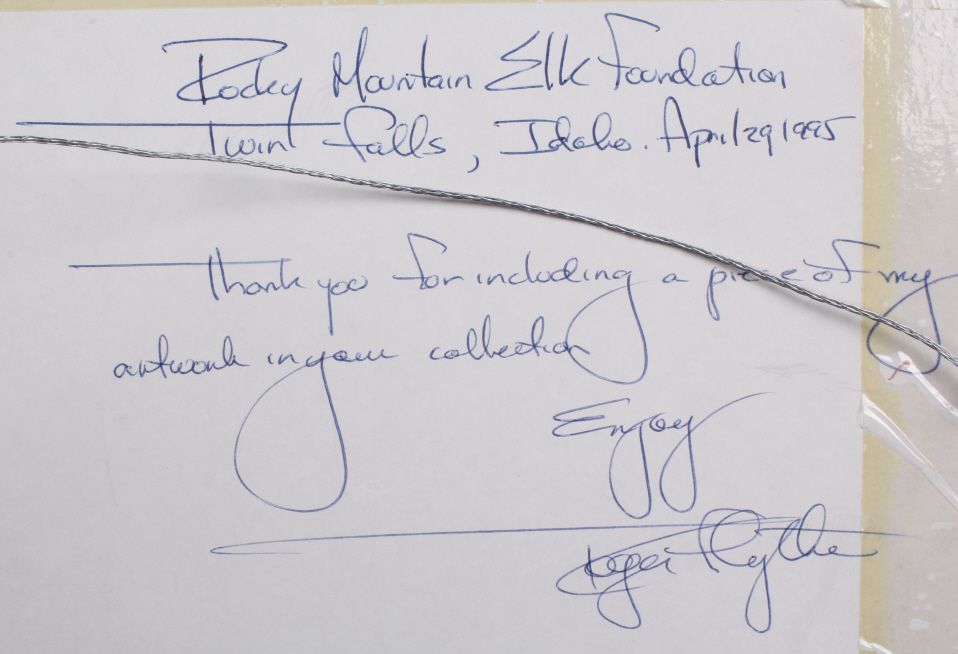 Rocky Mountain Elk Foundation
Twin Falls, Idaho. April 29 1995
Thank you for including a piece of my
artwork in your collection
Enjoy